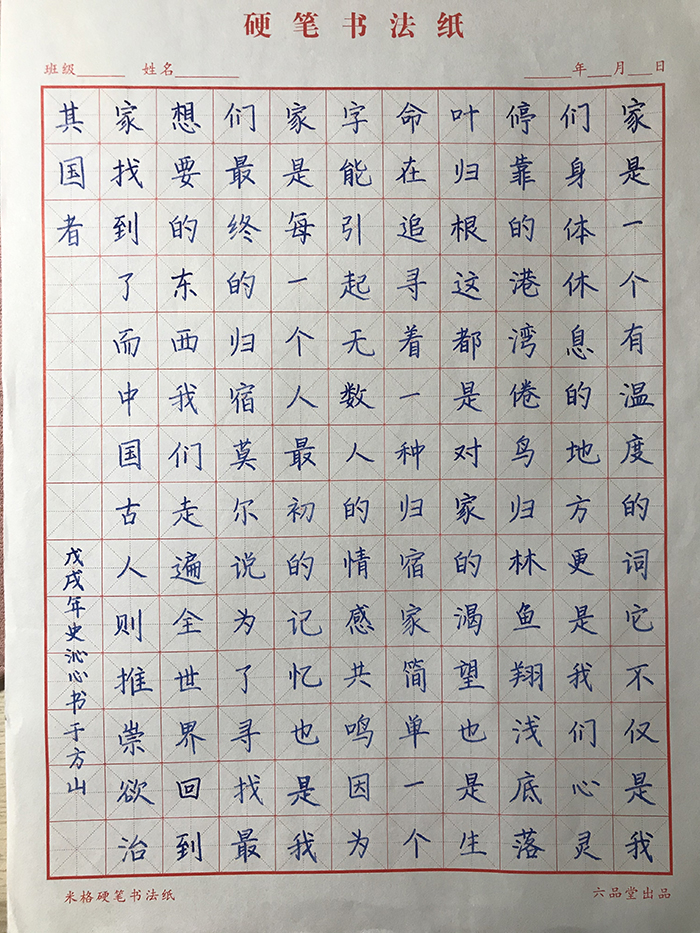 硬笔书法纸
班级 姓名 年 月 日
家是一个有温度的词它不仅是我
们身体休息的地方更是我们心灵
停靠的港湾倦鸟归林鱼翔浅底落
叶归根这都是对家的渴望也是生
命在追寻着一种归宿家简单一个
字能引起无数人的情感共鸣因为
家是每一个人最初的记忆也是我
们最终的归宿莫尔说为了寻找最
想要的东西我们走遍全世界回到
家找到了而中国古人则推崇欲治
其国者
戊戌年史沁心书于方山
米格硬笔书法纸 六品堂出品